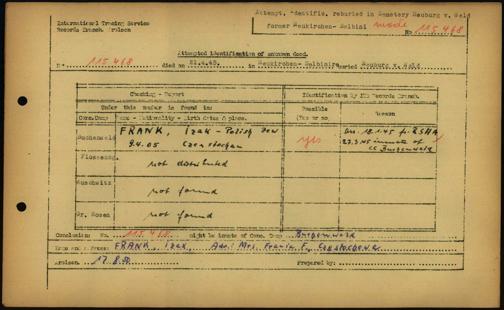 International Tracing Service
Records Branch, Arolsen
Attempt. Identific. reburied in Cemetery Neuburg v. Wald
former Neukirchen- Balbini
No. 115468
Attempted Identification of unknown dead.
N° 115468 died on 21.4.45. in Neukirchen-Balbini re buried Neuburg v. Wald
Checking - Report
Identification by ITS Records Branch.
Under this number is found in:
Possible
(Yes or no)
Reason
Conc.Camp Name - Nationality - Birth dates & place.
Buchenwald FRANK, Izak - Polish Jew
9.4.05 Czenstochau
yes
18.1.45 RSHA
inmate of
CC Buchenwald
Flossenbg. not distributed
Auschwitz not found
Gr. Rosen not found
Conclusion: No. 115.468 might be of Conc. Camp Buchenwald
FRANK, Izak, Mrs. Frank, F.,
Arolsen, 17.8.50 Prepared by: